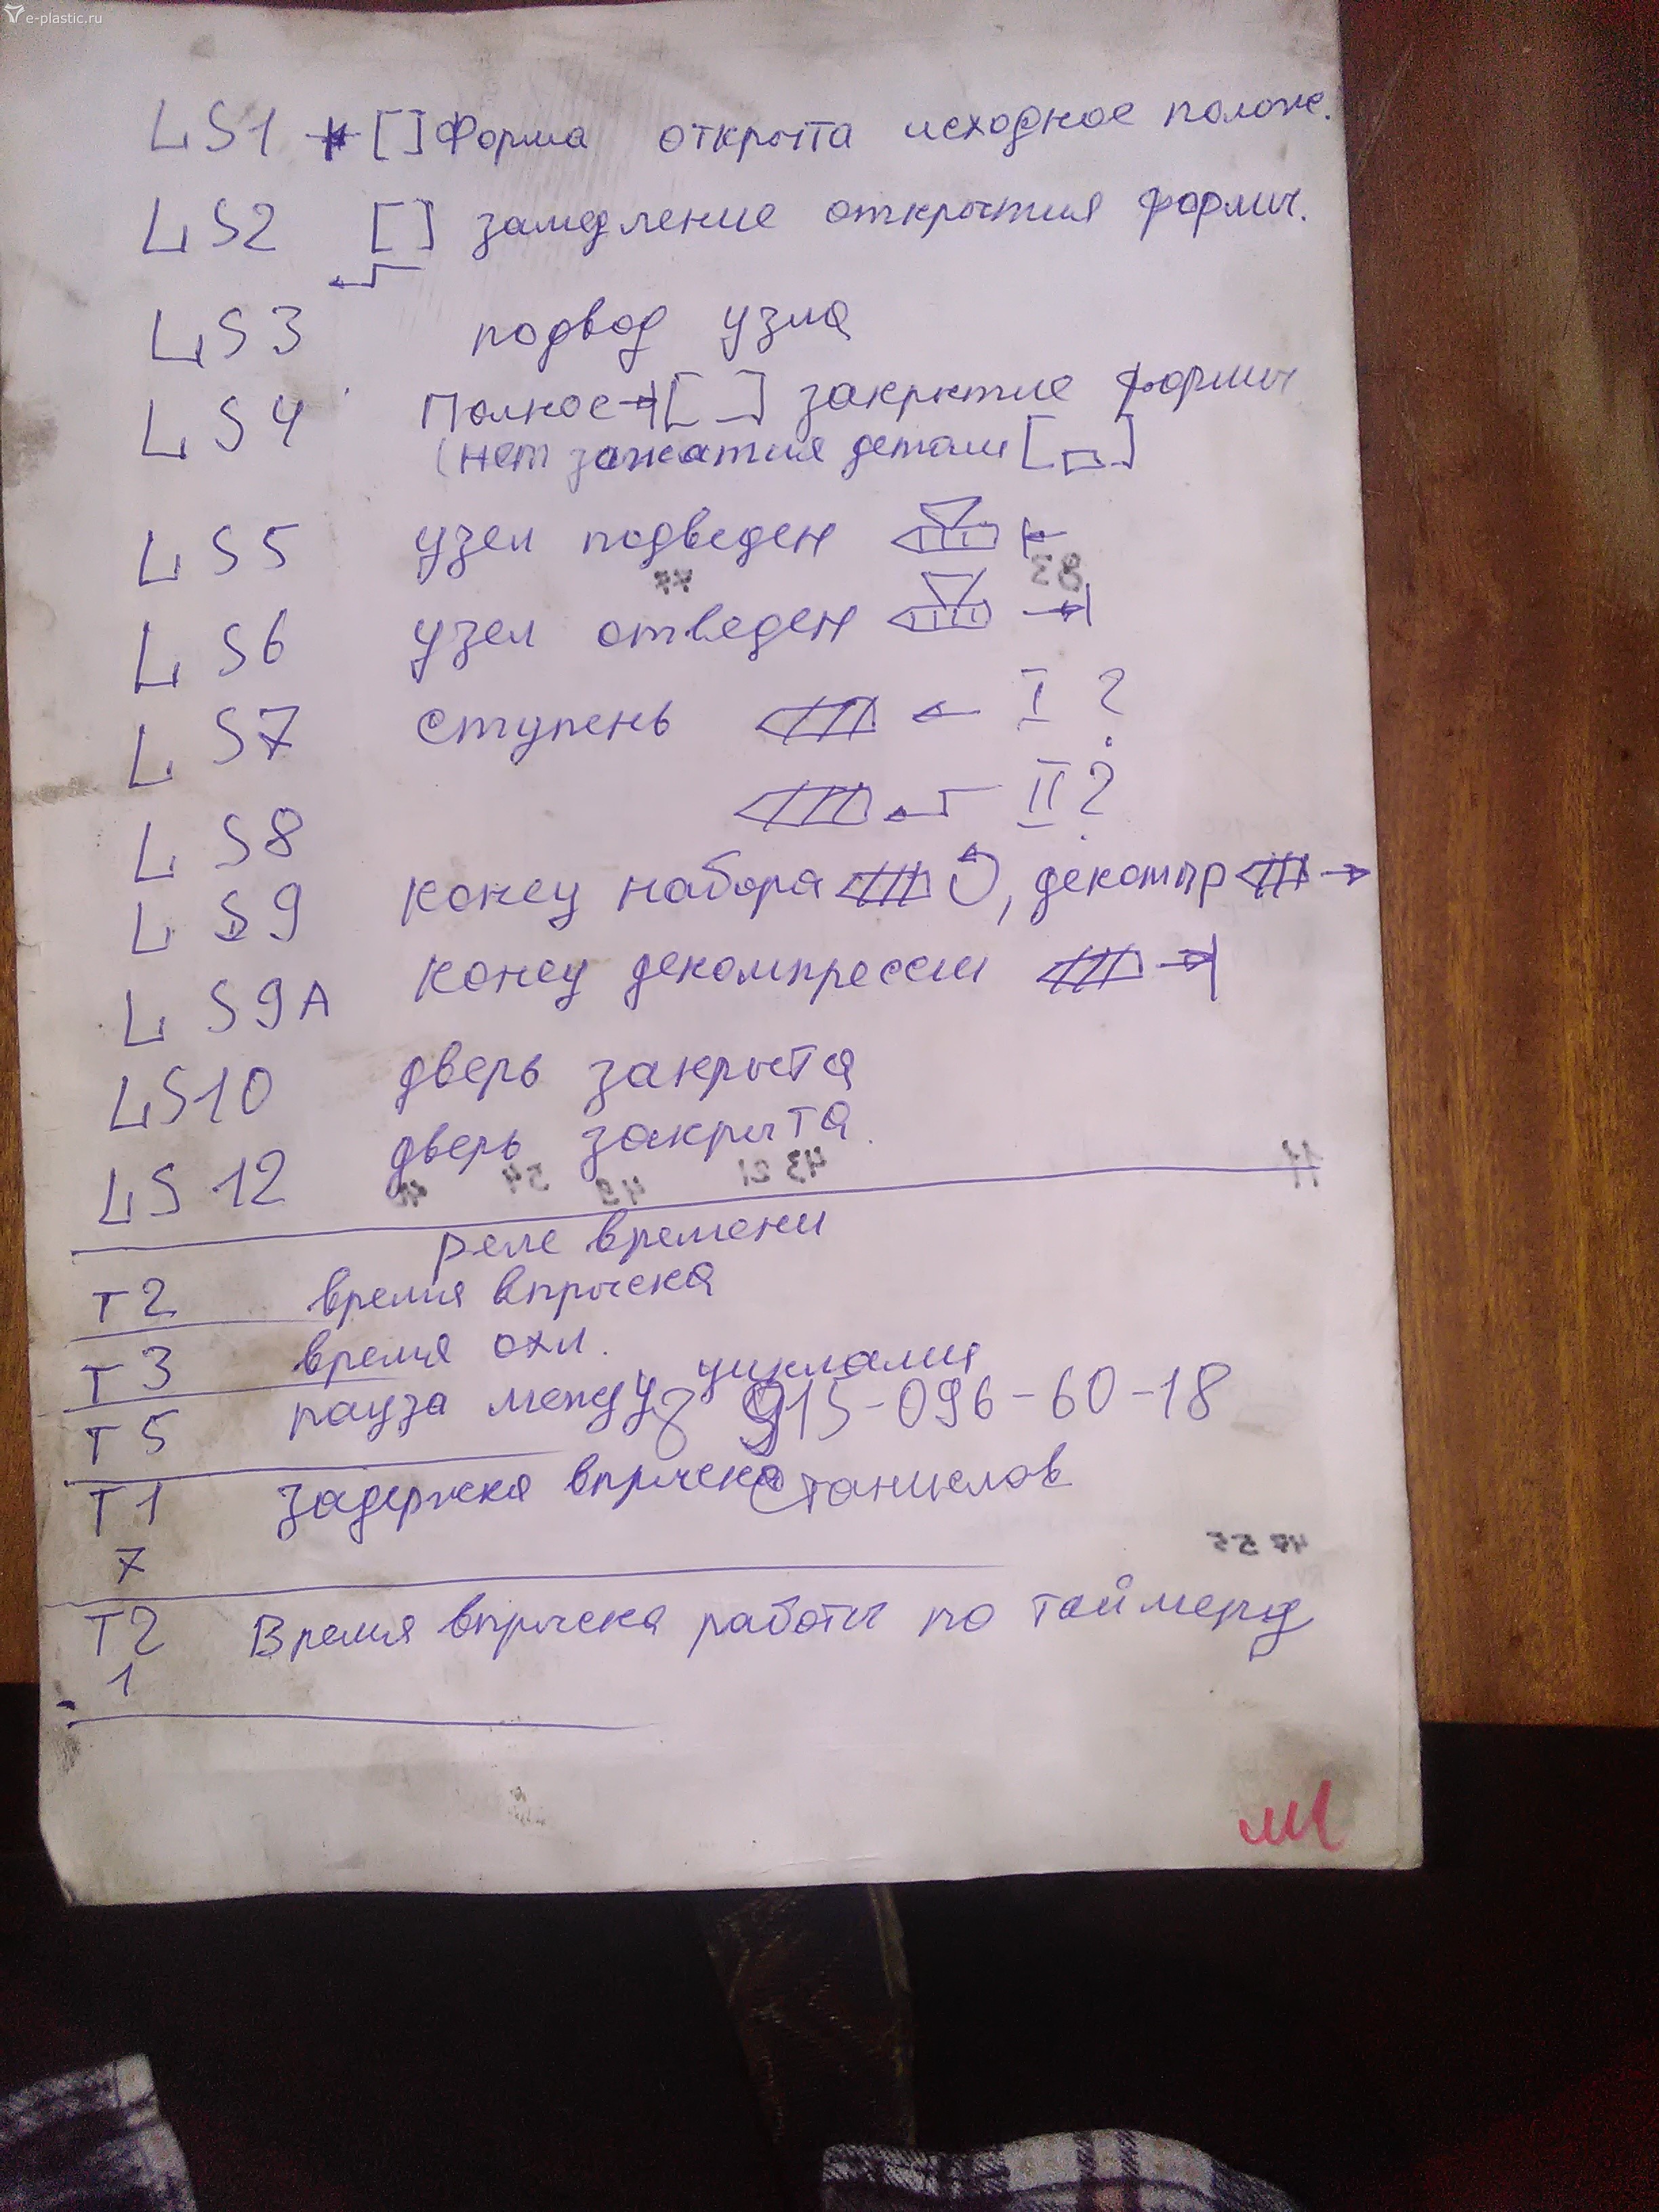 e-plastic.ru
LS1 [ ] Форма открыта исходное полож.
LS2 [ ] замедление открытия формы.
LS3 подвод узла
LS4 Полное [ ] закрытие формы
(нет зажатия детали [ ]
LS5 узел подведен
83
LS6 узел отведен
LS7 ступень I ?
LS8 II ?
LS9 конец набора , декомпр
LS9A конец декомпрессии
LS10 дверь закрыта
LS12 дверь закрыта.
54 49 21 43
реле времени
T2 время впрыска
T3 время охл.
T5 пауза между циклами
8 915-096-60-18
T1 задержка впрыска
Станислов
7
47 55
T2 Время впрыска работы по таймеру
1
м1